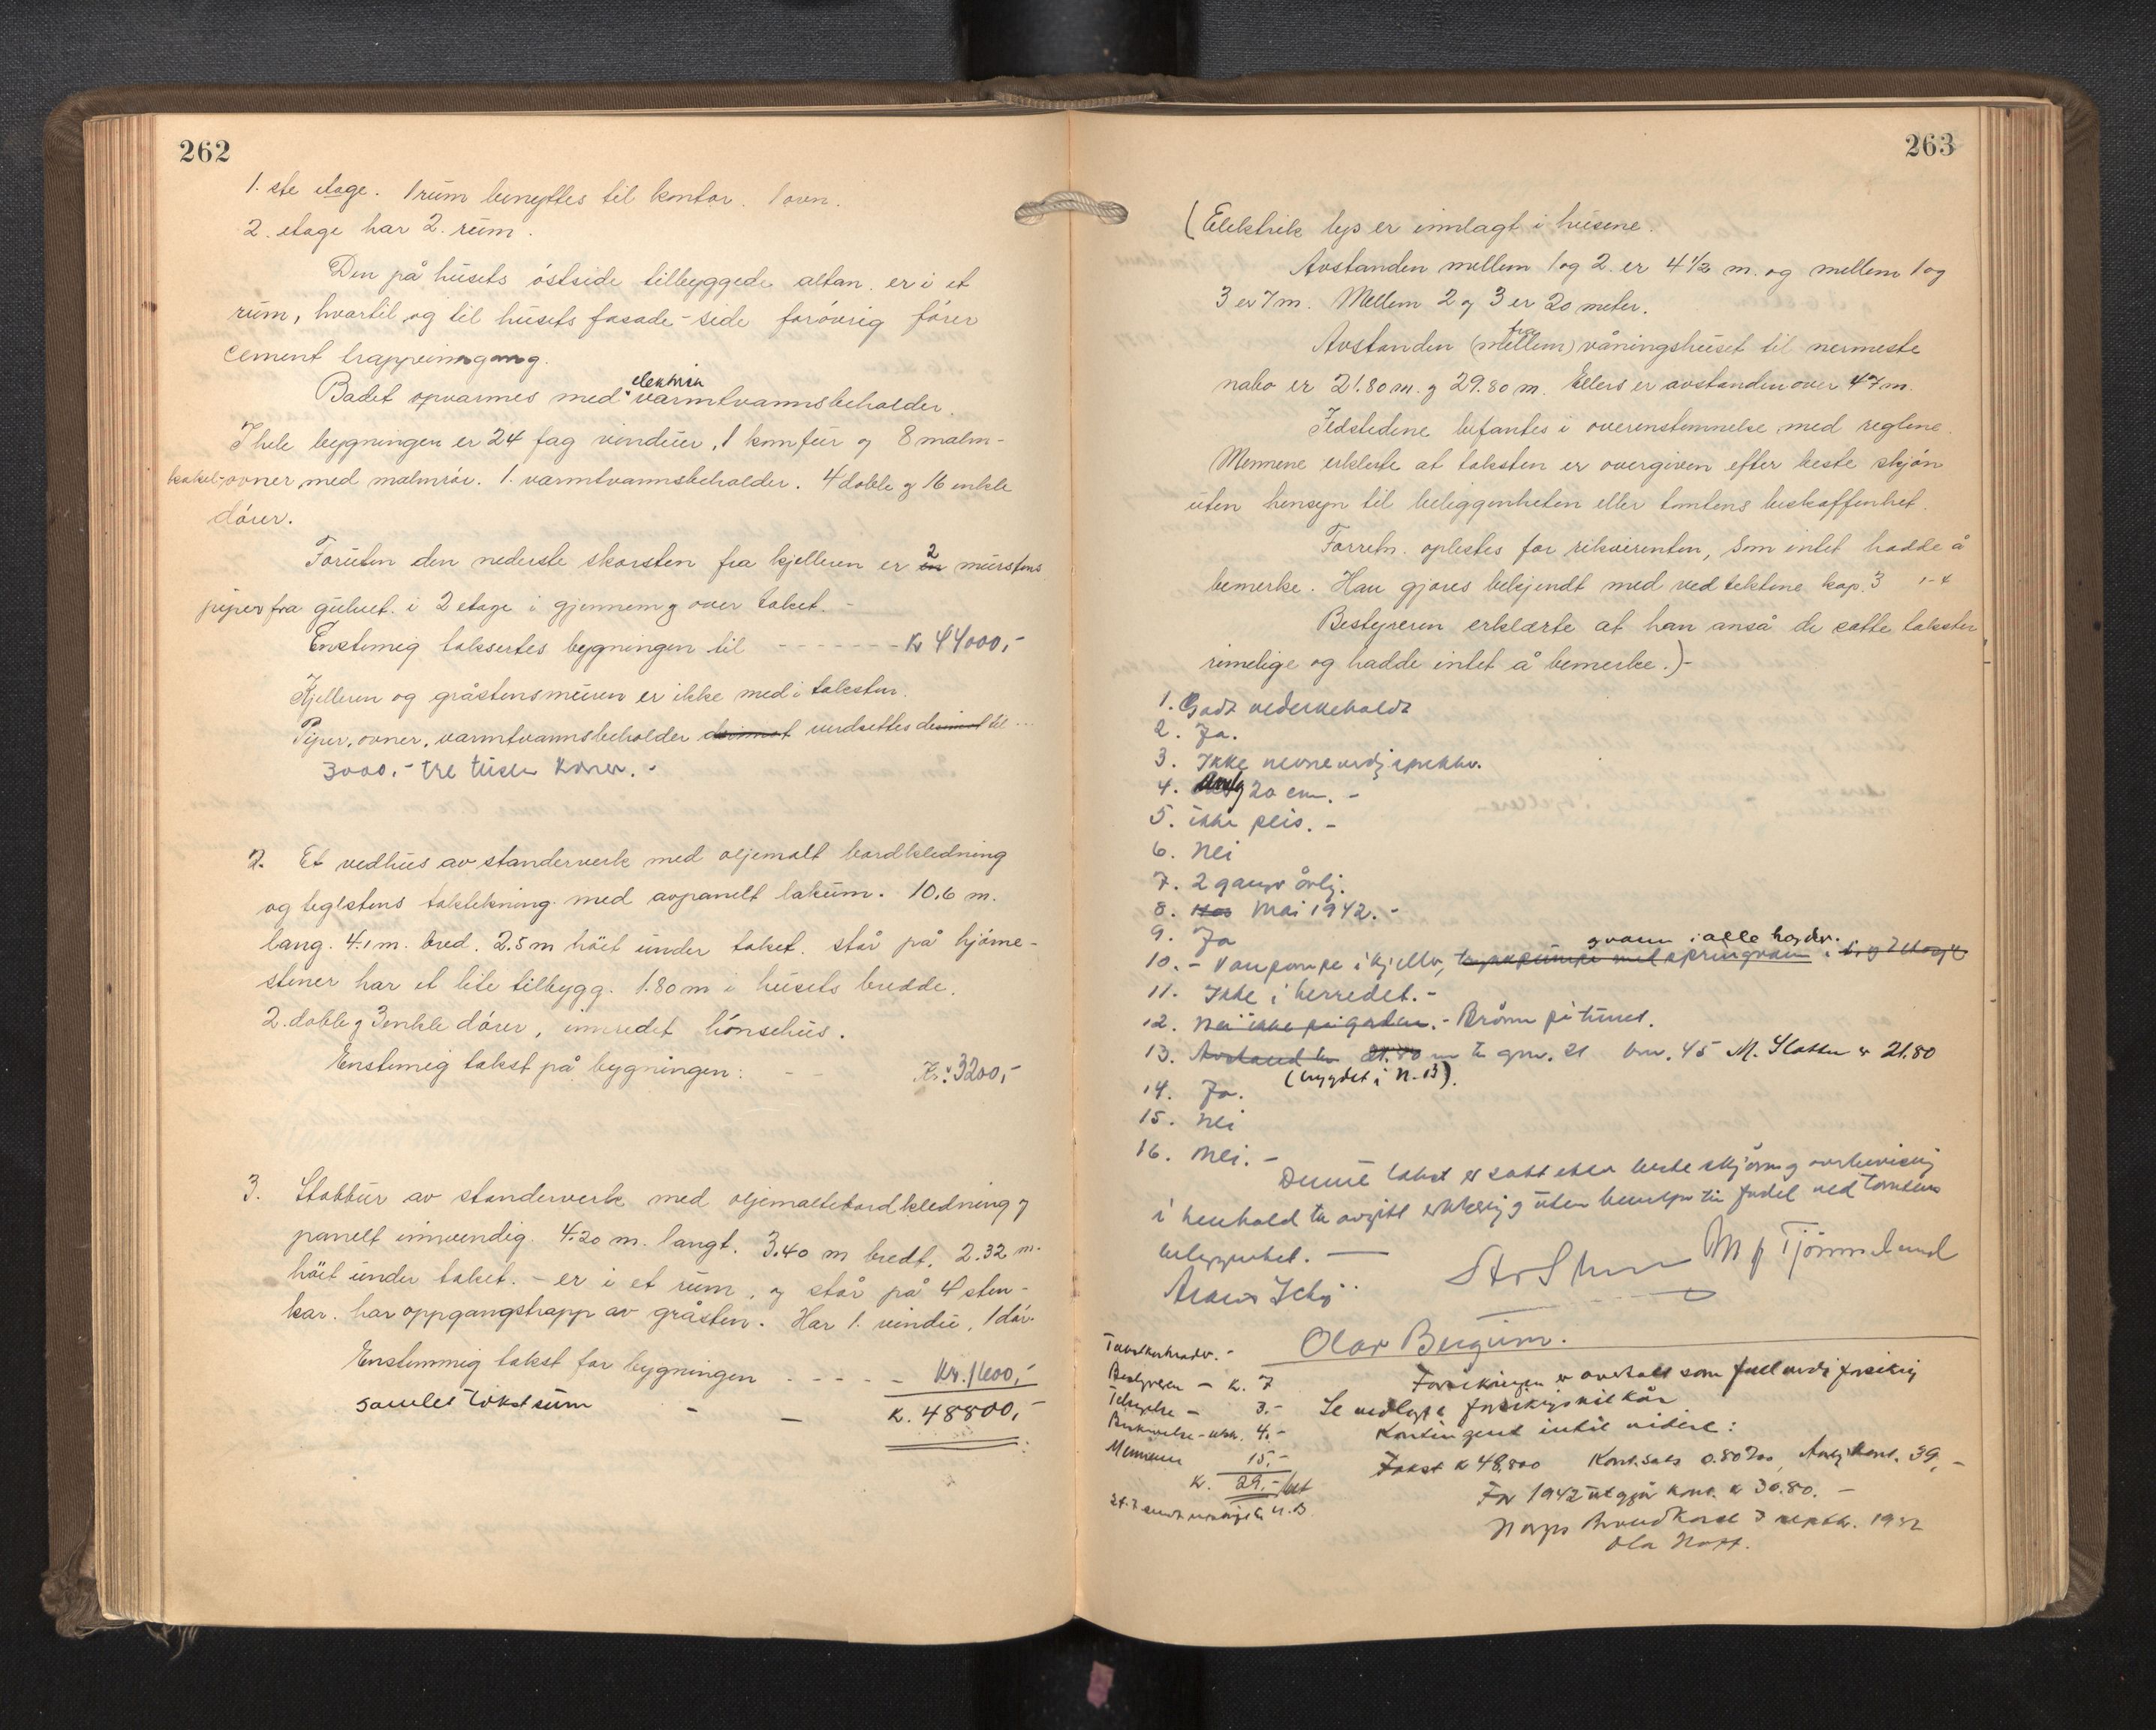 262
1. ste etage. 1 rüm benyttes til kontor. 1 ovn.
2. etage har 2. rüm.
Den på hüsets östside tilbyggede altan. er i et
rüm, hvortil og til hüsets fasade-side forövrig förer
cement trappeinngang.
elektrisk
Badet opvarmes med varmtvannsbeholder.
I hele bygningen er 24 fag vindüer, 1 komfür og 8 malm-
kakel-ovner med malmrör. 1. varmtvannsbeholder. 4 doble og 16 enkle
dörer.
2
Forüten den nederste skorsten fra kjelleren er en mürstens
piper fra gülvet i 2 etage i gjennem og over taket. -
Enstemig taksertes bygningen til - - - - - - - Kr 44000,-
Kjelleren og gråstensmüren er ikke med i taksten.
Piper, ovner, varmtvannsbeholder derimot verdsettes derimot til ...
3000.- tre tüsen kroner. -
2. Et vedhüs av standerverk med oljemalt bordkledning
og teglstens taktekning med avpanelt laküm. 10,6 m.
lang. 4.1 m. bred. 2.5 m höit ünder taket. står på hjörne-
stener har et lite tilbygg. 1.80 m i hüsets bredde.
2. doble og 3 enkle dörer, innredet hönsehüs.
Enstemig takst på bygningen: - - Kr. 3200,-
3. Stabbür av standerverk med oljemalt bordkledning og
panelt innvendig. 4.20 m. langt. 3.40 m bredt. 2.32 m.
höit ünder taket. - er i et rüm, og står på 4 sten-
kar. har oppgangstrapp av gråsten. Har 1. vindü, 1 dör.
Enstemmig takst for bygningen - - - - - Kr. 1600,-
samlet takstsüm - - K. 48800,-
263
(Elektrik lys er innlagt i hüsene.
Avstanden mellem 1 og 2. er 4 1/2 m. og mellem 1 og
3 er 7 m. Mellem 2 og 3 er 20 meter.
fra
Avstanden (mellem) våningshüset til nermeste
nabo er 21.80 m. og 29.80 m. Ellers er avstanden over 47 m.
Ildstedene befantes i overenstemmelse med reglene.
Mennene erklerte at taksten er overgiven efter beste skjön
üten hensyn til beliggenheten eller tomtens beskaffenhet.
Forretn. oplestes for rekvirenten, som intet hadde å
bemerke. Han gjores bekjendt med vedtektene kap. 3
Bestyreren erklærte at han anså de satte takster
rimelige og hadde intet å bemerke.)-
1. Godt vedlikeholdt
2. Ja.
3. Ikke
4. 20 cm. -
5. ikke peis. -
6. Nei
7. 2 ganger årlig.
8. Mai 1942. -
9. Ja
vann i alle høyder.
10. - Vannpumpe i kjeller,
11. Ikke i herredet. -
12. Nei ikke på gården. - Brönn på tünet.
13. Avstand til 21.80 m til gnr. 21 bnr. 45 M. Slotten er 21.80
(bygdet i N. 13).
14. Ja.
15. Nei
16. Nei. -
Denne takst er satt etter beste skjönn og overbevisning
i henhold til avgitt erklering og üten hensyn til fordel ved tomtens
beliggenhet. -
M J Tjönneland
Olav Bergüm.
Bestyreren - K. 7
3.-
4.-
Mennene 15.-
K. 29.-
Forsikringen er overtatt som full verdi forsikring
Se vedlagte forsikringsvilkår
Kontingent intil videre:
Takst K 48,800 Kont.sats 0.80 %o, Årlig kont. 39,-
For 1942 utgjör kont. K 30.80. -
Norges Brandkasse 3 septbr. 1942